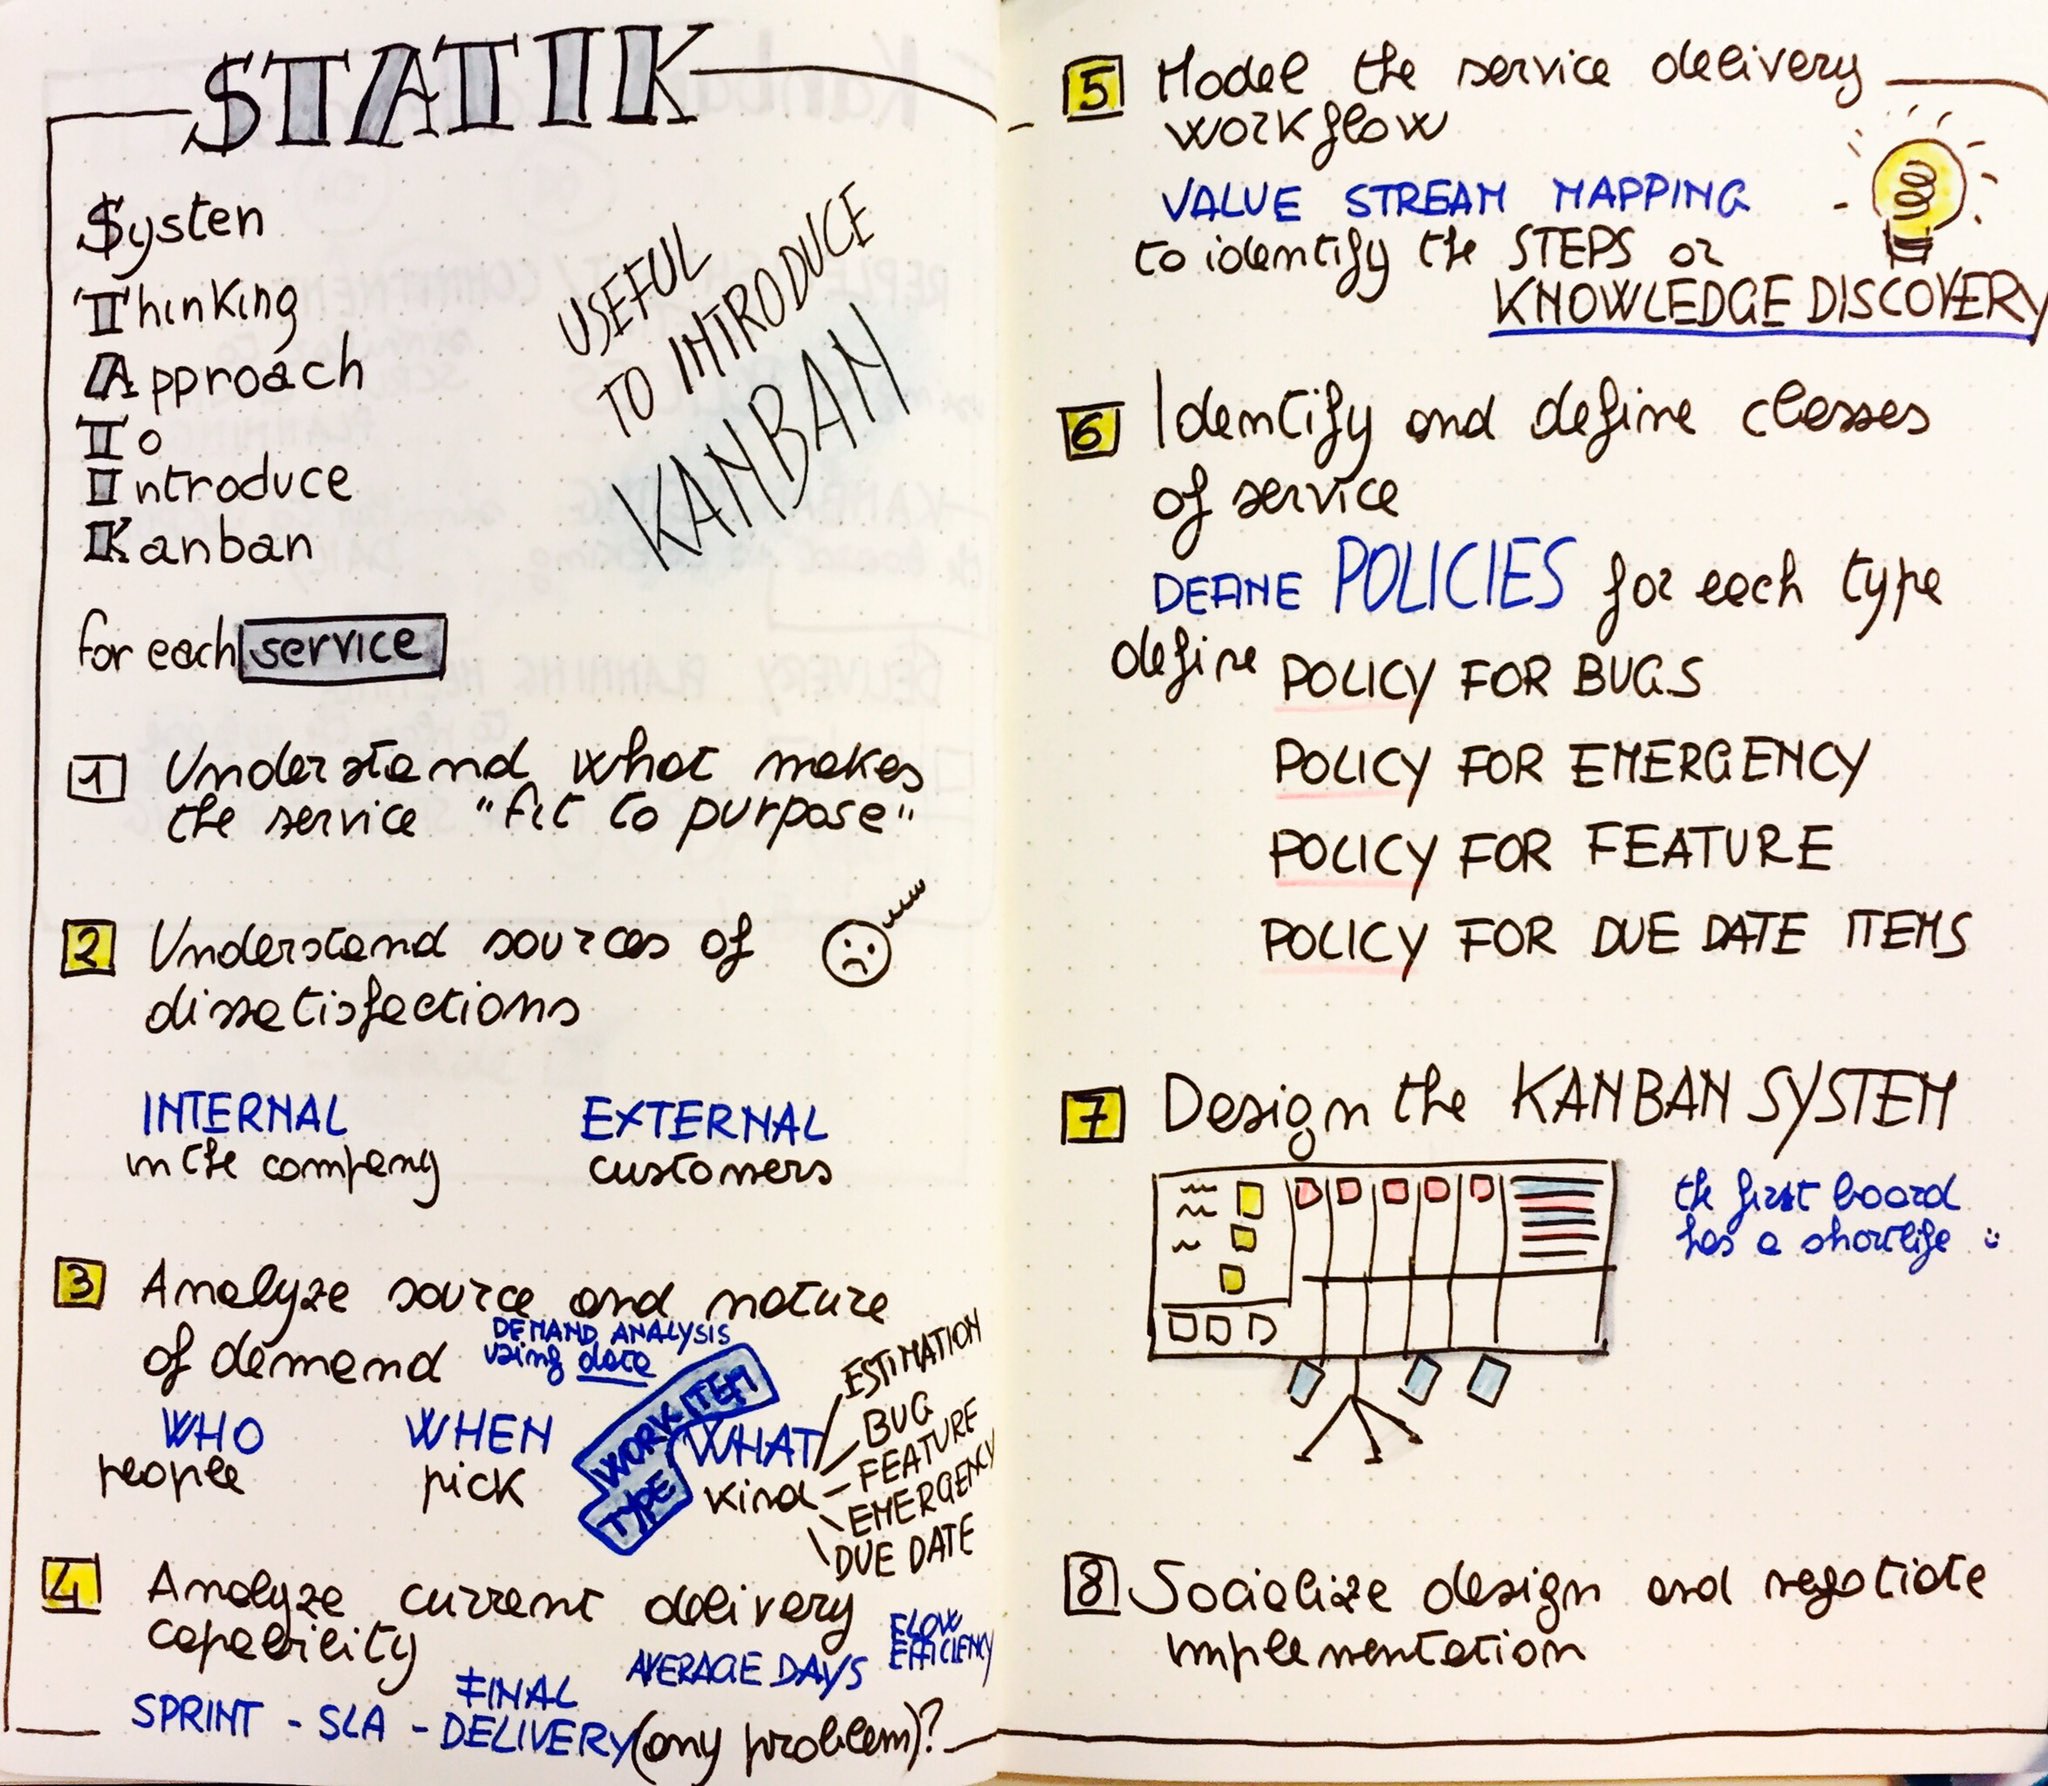 STATIK
Systen
Thinking
Approach
To
Introduce
Kanban
USEFUL
TO INTRODUCE
KANBAN
for each service
1 Understand what makes
the service "fit to purpose"
2 Understand sources of
dissatisfactions
INTERNAL EXTERNAL
in the company customers
3 Analyze source and nature
of demand
DEMAND ANALYSIS
using data
WHO WHEN WHAT
people pick kind
WORK ITEM
TYPE
ESTIMATION
BUG
FEATURE
EMERGENCY
DUE DATE
4 Analyze current delivery
capability
AVERAGE DAYS
FLOW
EFFICIENCY
SPRINT - SLA - FINAL
DELIVERY (any problem)?
5 Model the service delivery
workflow
VALUE STREAM MAPPING
to identify the STEPS or
KNOWLEDGE DISCOVERY
6 Identify and define classes
of service
DEFINE POLICIES for each type
define POLICY FOR BUGS
POLICY FOR EMERGENCY
POLICY FOR FEATURE
POLICY FOR DUE DATE ITEMS
7 Design the KANBAN SYSTEM
the first board
has a shortlife
8 Socialize design and negotiate
implementation